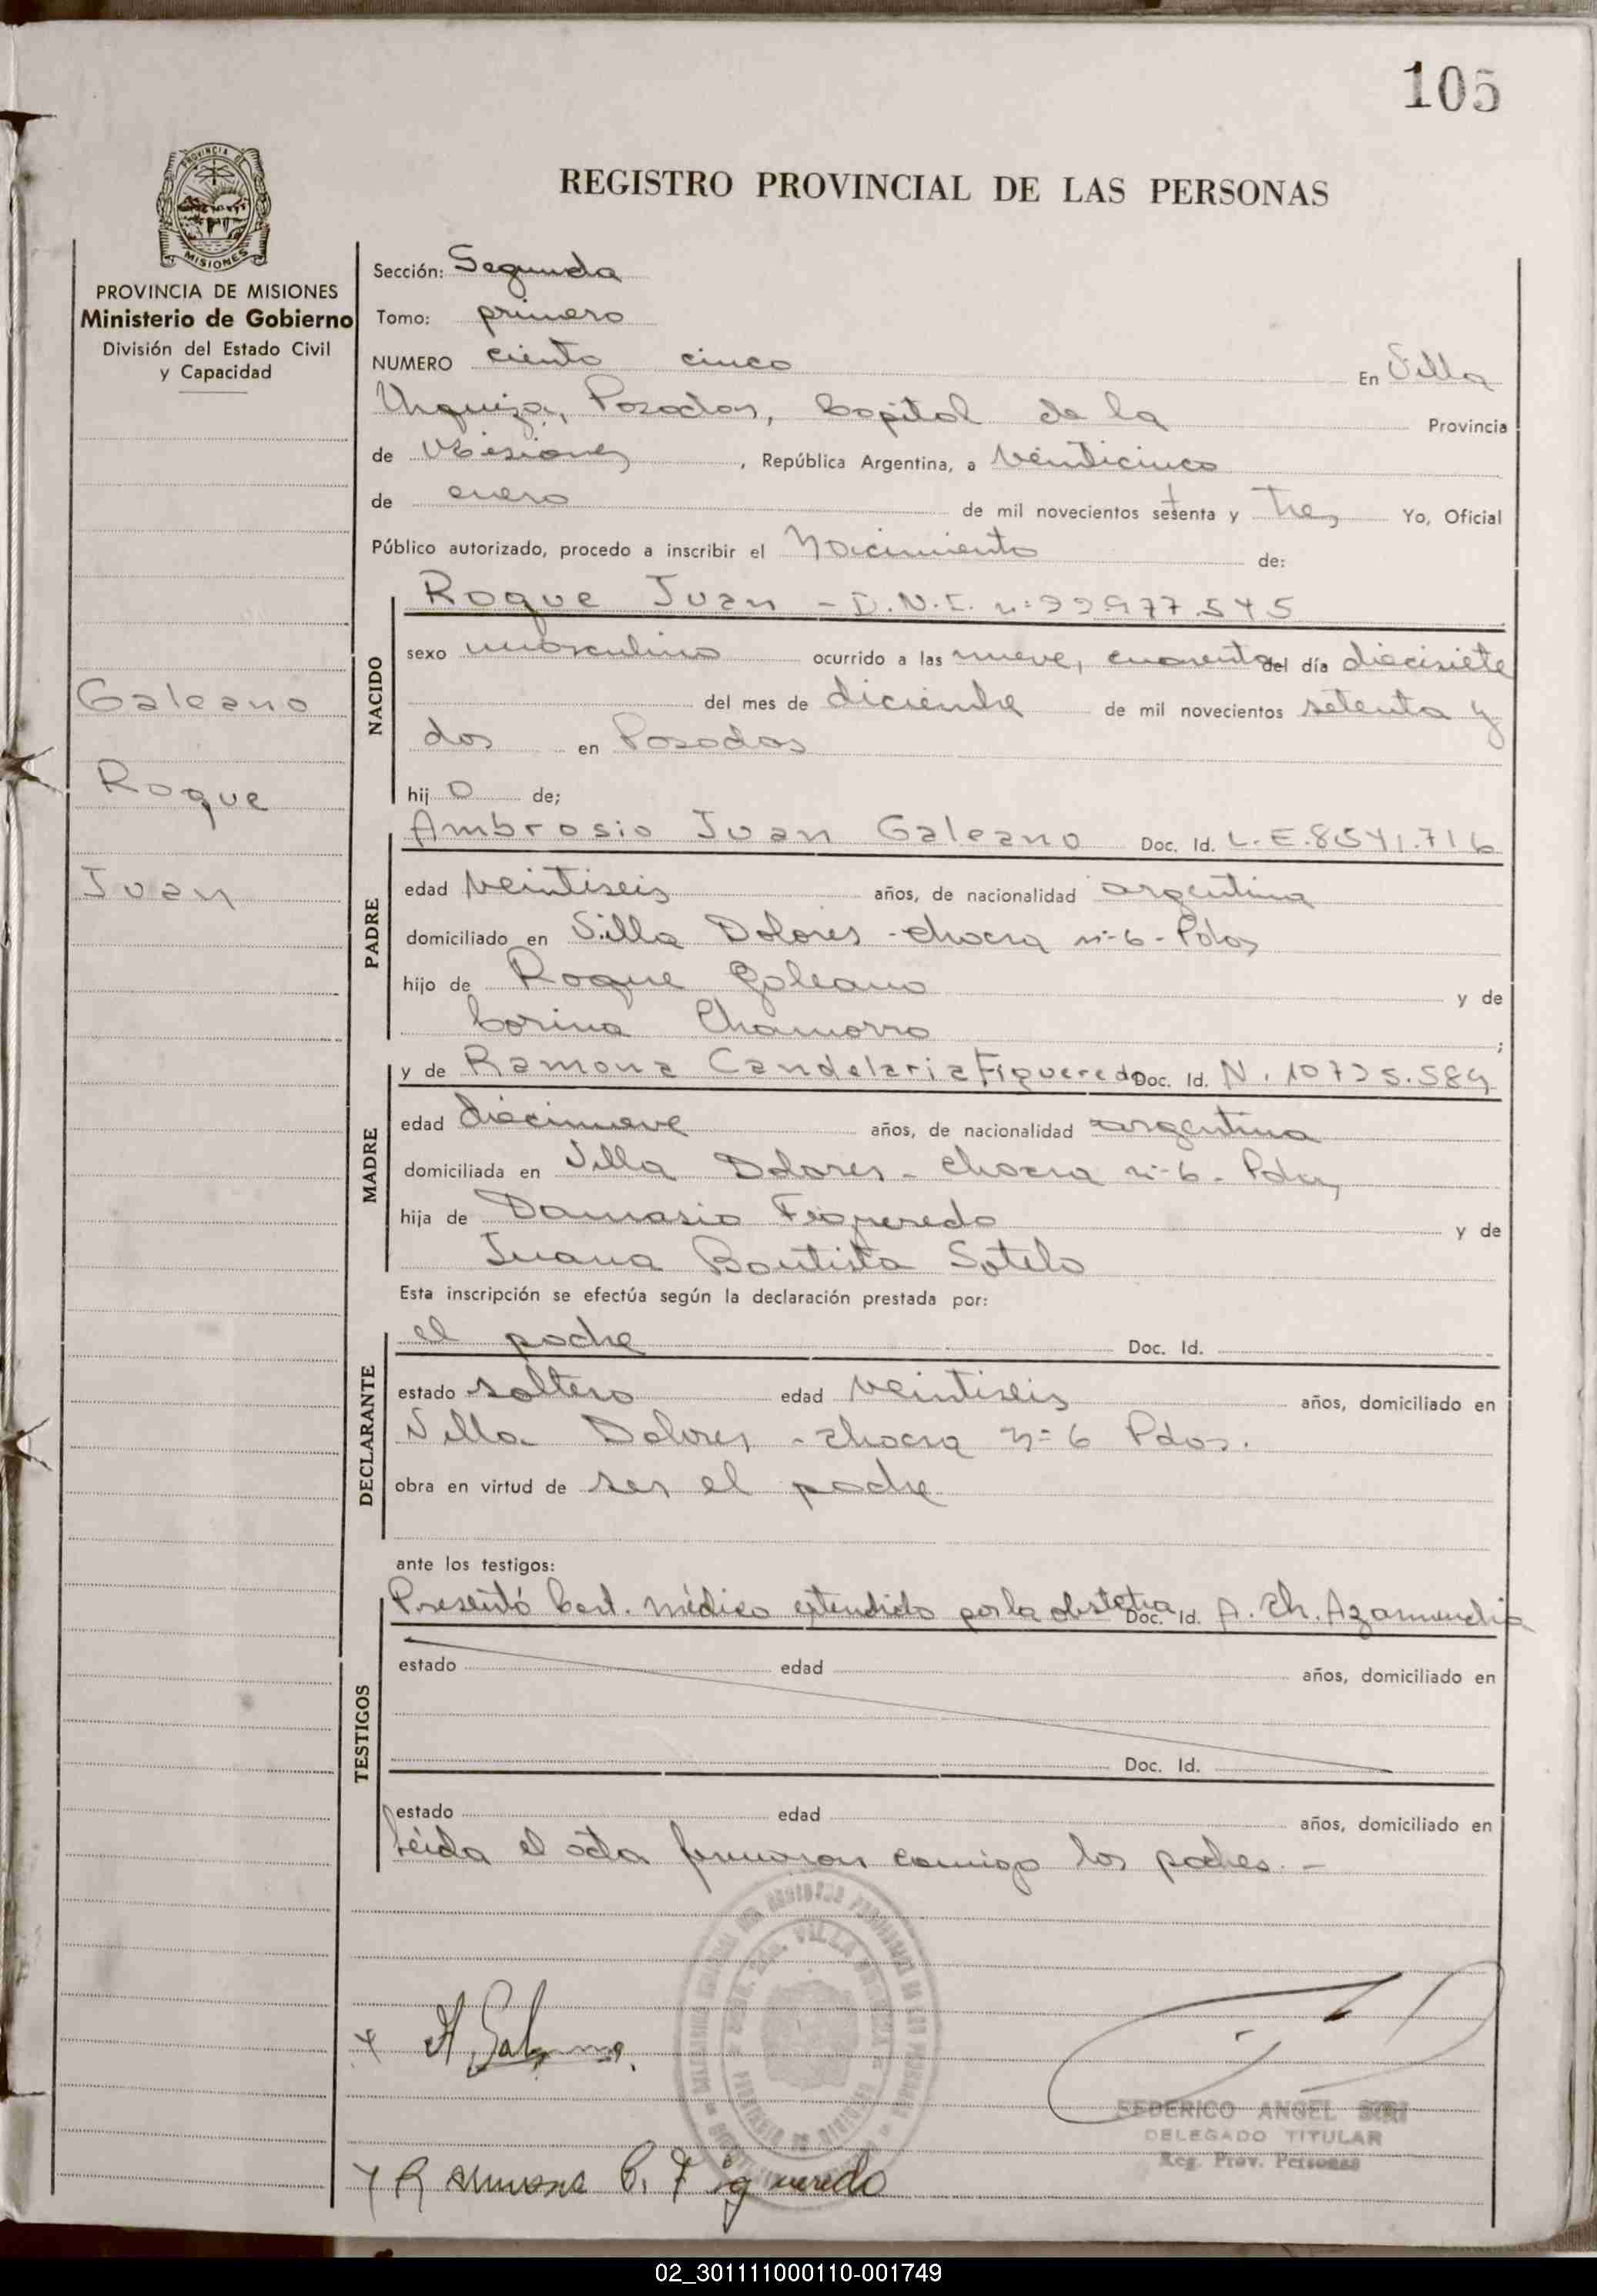 105
PROVINCIA DE MISIONES
REGISTRO PROVINCIAL DE LAS PERSONAS
PROVINCIA DE MISIONES
Ministerio de Gobierno
División del Estado Civil
y Capacidad
Sección: Segunda
Tomo: primero
NUMERO ciento cinco En Villa
Urquiza, Posadas, Capital de la Provincia
de Misiones, República Argentina, a veinticinco
de enero de mil novecientos setenta y tres Yo, Oficial
Público autorizado, procedo a inscribir el Nacimiento de:
Roque Juan - D.N.I. nº
NACIDO
sexo masculino ocurrido a las nueve, cuarenta del día diecisiete
del mes de diciembre de mil novecientos setenta y
dos en Posadas
hijo de;
Galeano
Roque
Juan
PADRE
Ambrosio Juan Galeano Doc. Id. L.E. 8.541.716
edad veintiseis años, de nacionalidad argentina
domiciliado en Villa Dolores - chacra nº 6 - Pdas
hijo de Roque Galeano y de
Corina Chamorro ;
MADRE
y de Ramona Candelaria Figueredo Doc. Id. N. 10.725.589
edad diecinueve años, de nacionalidad argentina
domiciliada en Villa Dolores - chacra nº 6 - Pdas
hija de Damasio Figueredo y de
Juana Bautista Sotelo
Esta inscripción se efectúa según la declaración prestada por:
DECLARANTE
el padre Doc. Id.
estado soltero edad veintiseis años, domiciliado en
Villa Dolores - chacra nº 6 Pdas.
obra en virtud de ser el padre
ante los testigos:
TESTIGOS
Presentó Cert. médico extendido por la obstetra Doc. Id. A. Ch. Azarmendia
estado edad años, domiciliado en
Doc. Id.
estado edad años, domiciliado en
Leida el acta firmaron conmigo los padres. -
x A Galeano.
FEDERICO ANGEL
DELEGADO TITULAR
Reg. Prov. Personas
x Ramona C. Figueredo
02_301111000110-001749